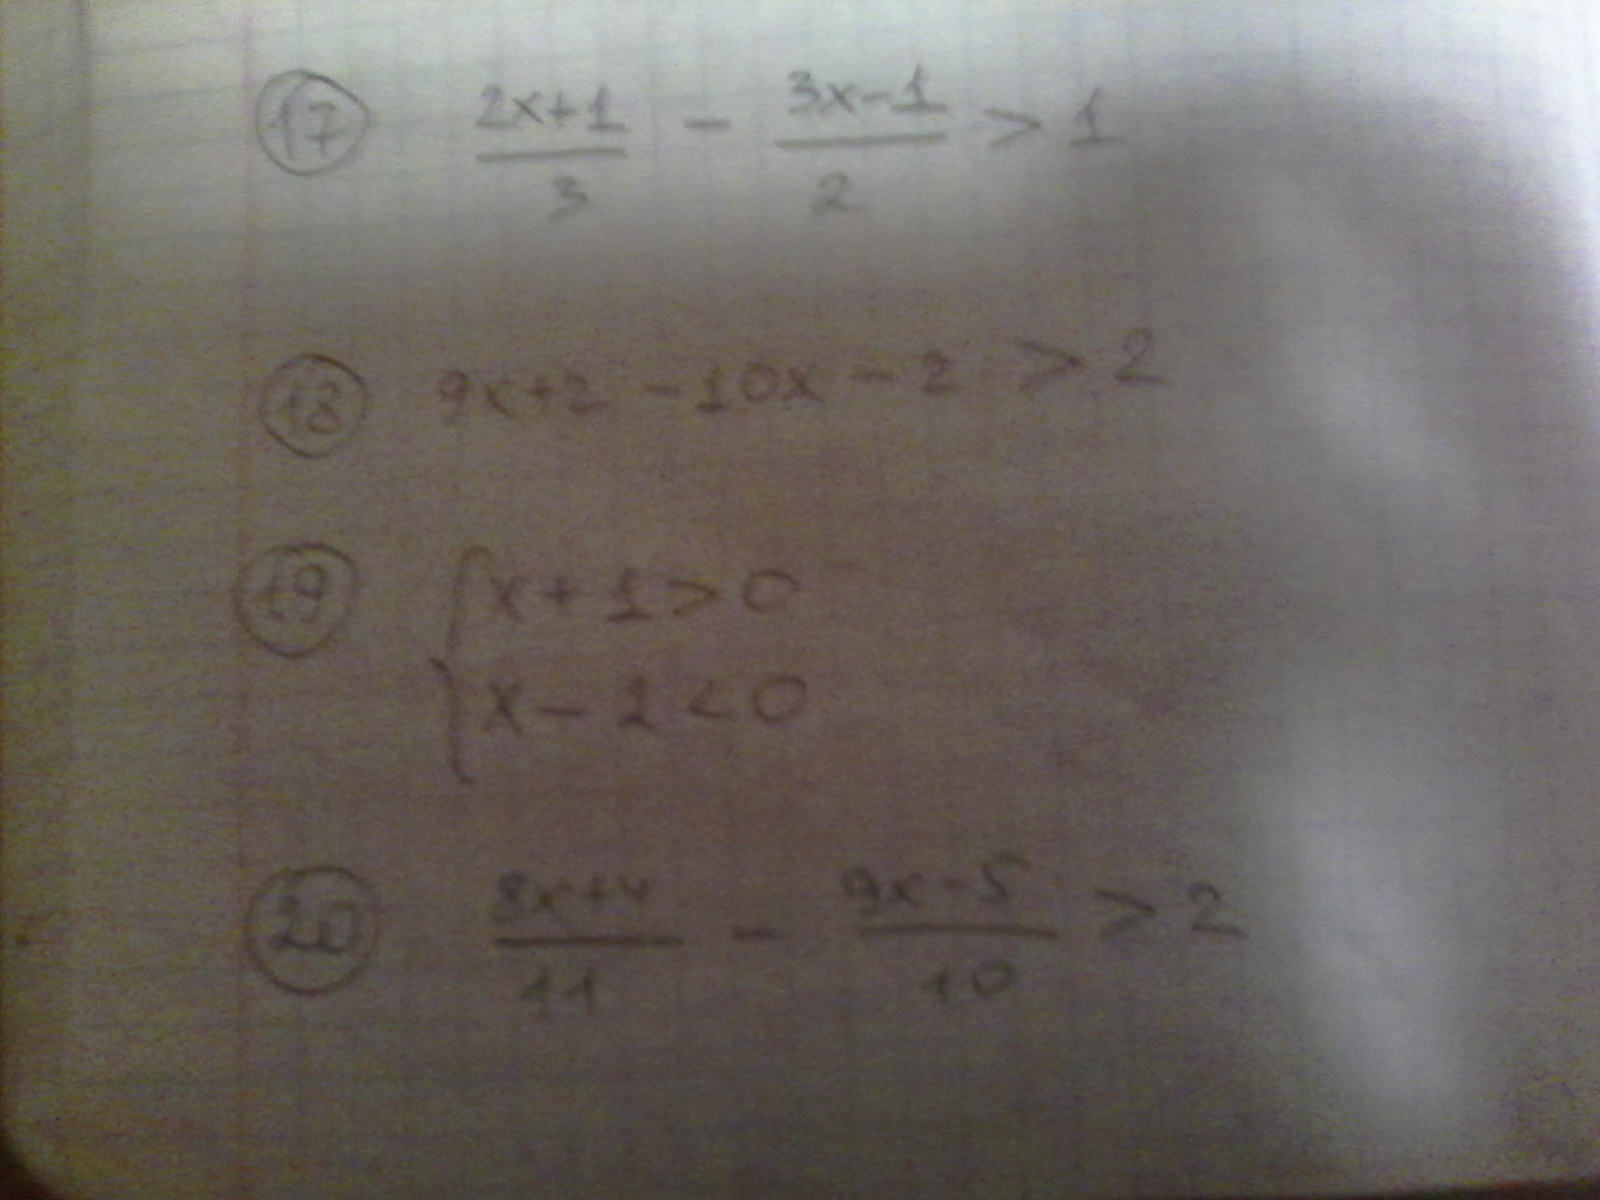 17 2x+1/3 - 3x-1/2 > 1
18 9x+2 -10x - 2 > 2
19 { x+1>0
x-2<0
20 8x+4/11 - 9x-5/10 > 2